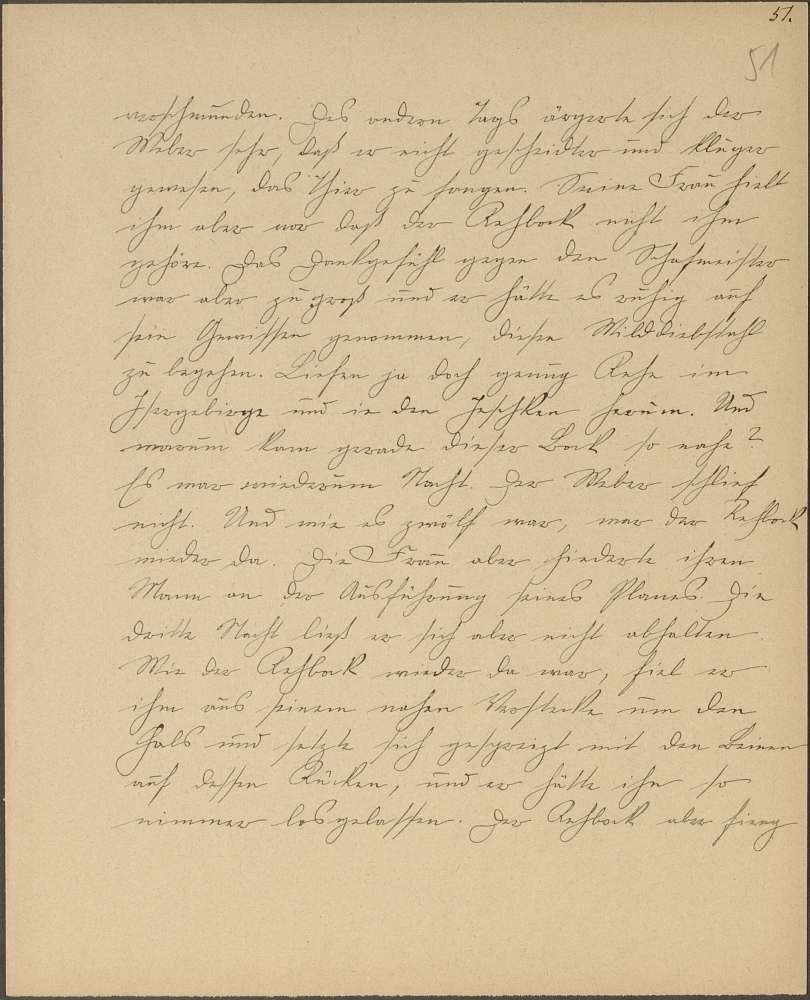 51.
51
verschwunden. Des andern Tags ärgerte sich der
Weber sehr, daß er nicht gescheidter und klüger
gewesen, das Thier zu fangen. Seine Frau hielt
ihm aber vor daß der Rehbock nicht ihm
gehöre. Das Dankgefühl gegen den Schafmeister
war aber zu groß und er hätte es ruhig auf
sein Gewissen genommen, diesen Wilddiebstahl
zu begehen. Liefen ja doch genug Rehe im
Isergebirge und in den Jeschken herum. Und
warum kam gerade dieser Bock so nahe?
Es war wiederum Nacht. Der Weber schlief
nicht. Und wie es zwölf war, war der Rehbock
wieder da. Die Frau aber hinderte ihren
Mann an der Ausführung seines Planes. Die
dritte Nacht ließ er sich aber nicht abhalten.
Wie der Rehbock wieder da war, fiel er
ihm aus seinem nahen Verstecke um den
Hals und setzte sich gespreizt mit den Beinen
auf dessen Rücken, und er hätte ihn so
nimmer losgelassen. Der Rehbock aber fieng